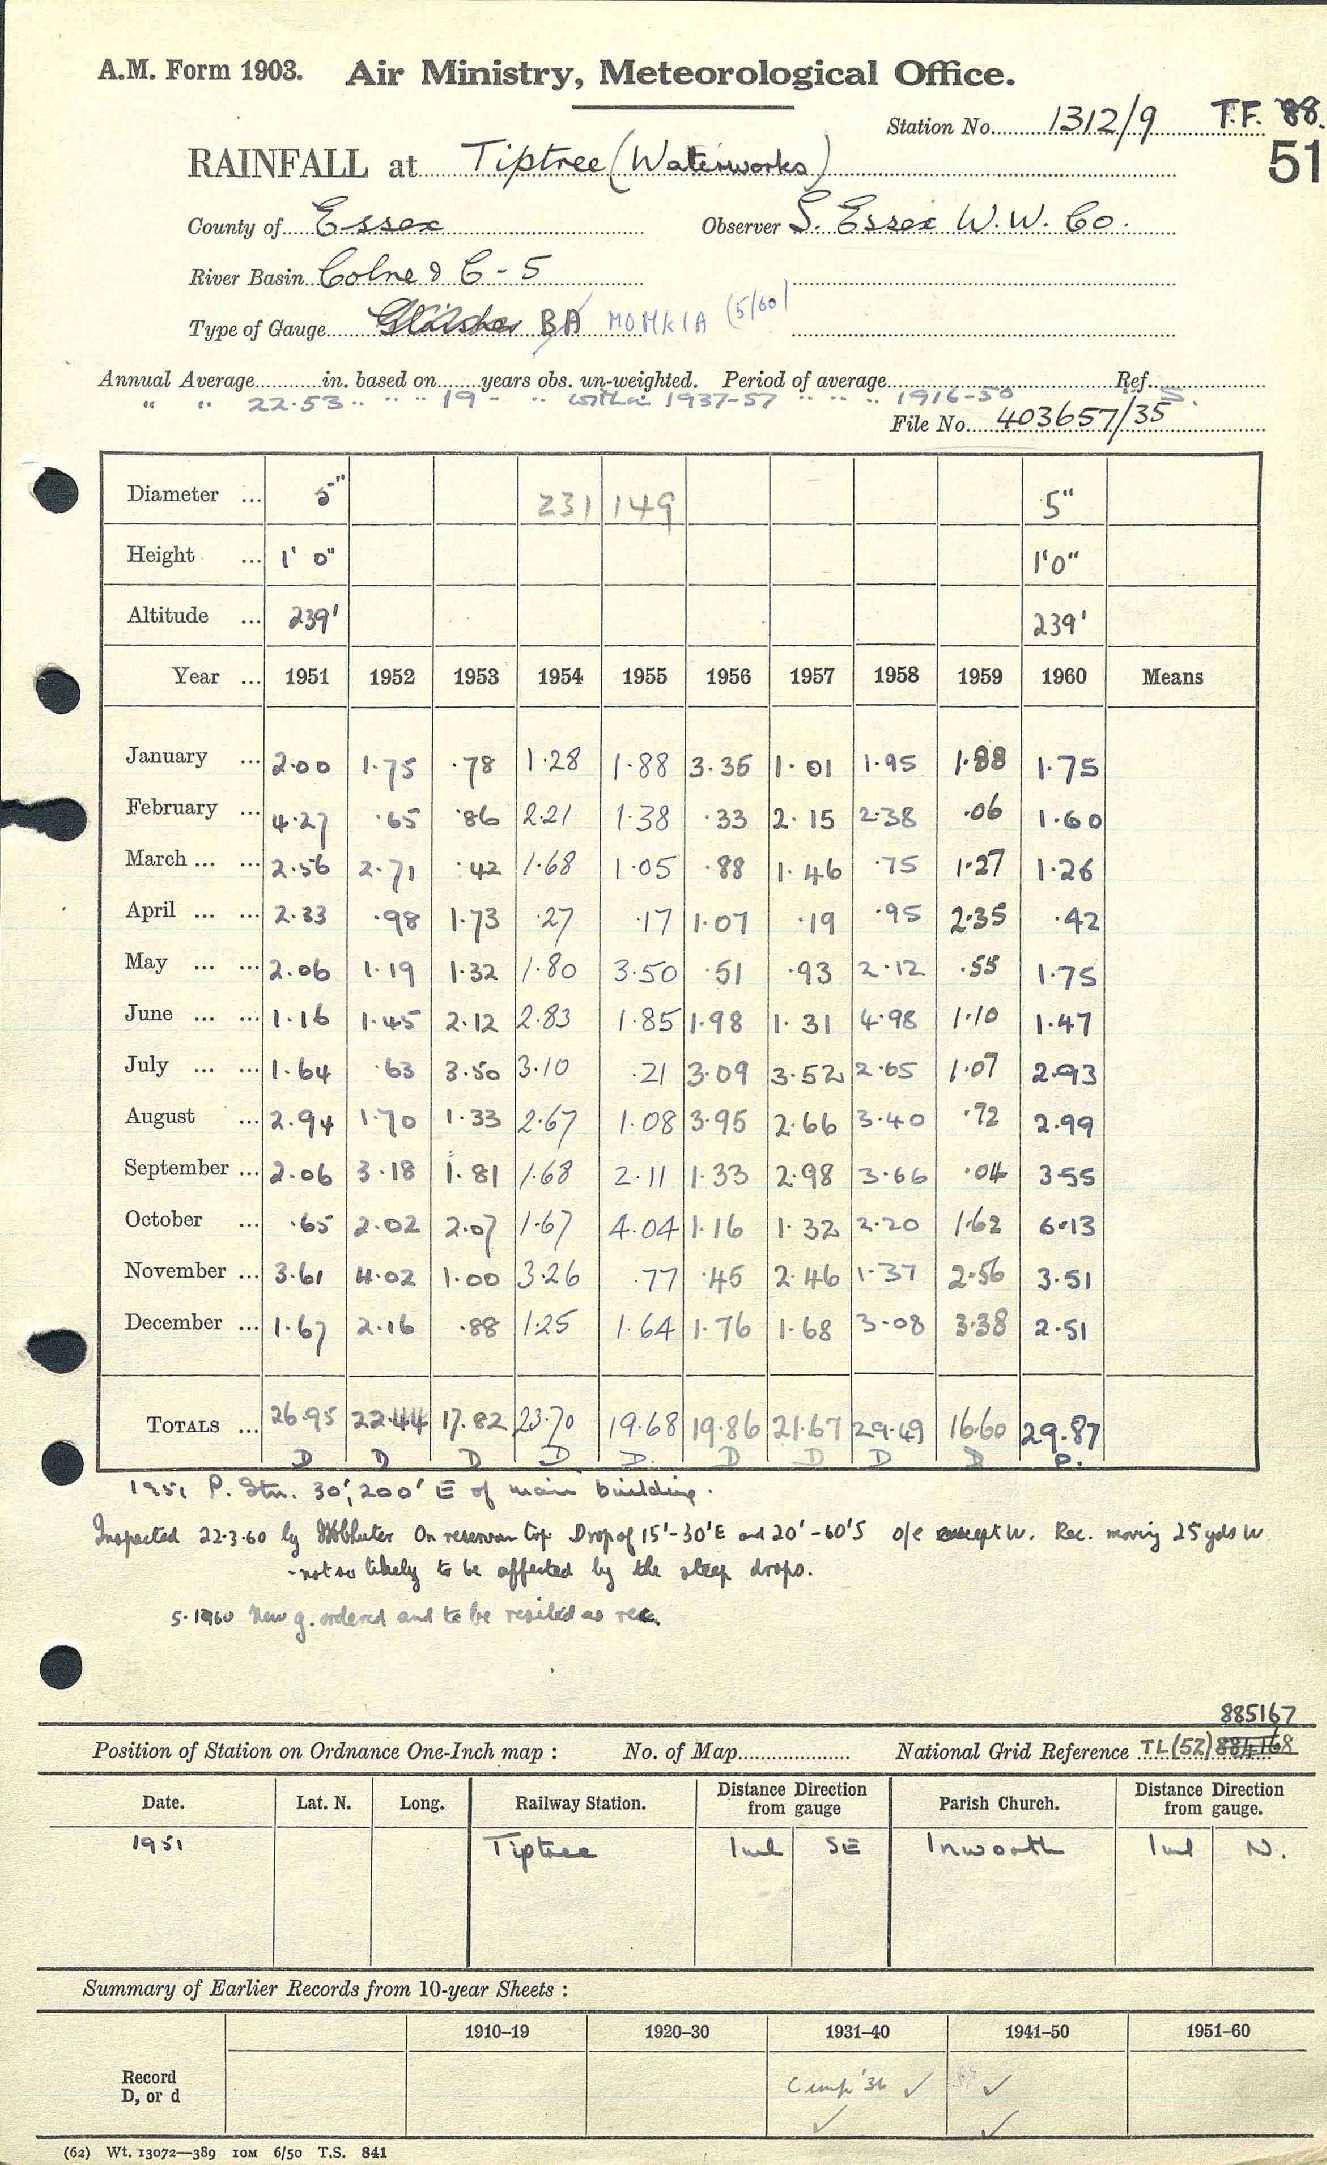 A.M. Form 1903. Air Ministry, Meteorological Office.
Station No. 1312/9 T.F. 88.
51
RAINFALL at Tiptree (Waterworks)
County of Essex Observer S. Essex W.W. Co.
River Basin Colne & C-5
Type of Gauge BA MO MkIA (5/60)
Annual Average in. based on years obs. un-weighted. Period of average Ref.
" " 22.53 " " " 19 - " within 1937-57 " " " 1916-50 S.
File No. 403657/35
Diameter ... 5" 231 149 5"
Height ... 1' 0" 1'0"
Altitude ... 239' 239'
Year ... 1951 1952 1953 1954 1955 1956 1957 1958 1959 1960 Means
January ... 2.00 1.75 .78 1.28 1.88 3.35 1.01 1.95 1.88 1.75
February ... 4.27 .65 .86 2.21 1.38 .33 2.15 2.38 .06 1.60
March ... ... 2.56 2.71 .42 1.68 1.05 .88 1.46 .75 1.27 1.26
April ... ... 2.33 .98 1.73 .27 .17 1.07 .19 .95 2.35 .42
May ... ... 2.06 1.19 1.32 1.80 3.50 .51 .93 2.12 .55 1.75
June ... ... 1.16 1.45 2.12 2.83 1.85 1.98 1.31 4.98 1.10 1.47
July ... ... 1.64 .63 3.50 3.10 .21 3.09 3.52 2.65 1.07 2.93
August ... 2.94 1.70 1.33 2.67 1.08 3.95 2.66 3.40 .72 2.99
September ... 2.06 3.18 1.81 1.68 2.11 1.33 2.98 3.66 .04 3.55
October ... .65 2.02 2.07 1.67 4.04 1.16 1.32 2.20 1.62 6.13
November ... 3.61 4.02 1.00 3.26 .77 .45 2.46 1.37 2.56 3.51
December ... 1.67 2.16 .88 1.25 1.64 1.76 1.68 3.08 3.38 2.51
TOTALS ... 26.95 22.44 17.82 23.70 19.68 19.86 21.67 29.49 16.60 29.87
D D D D D. D D D D D.
1951 P. Stn. 30', 200' E of main building.
Inspected 22.3.60 by On reservoir top Drop of 15'-30'E and 20'-60'S o/e except W. Rec. moving 25 yds W
- not so likely to be affected by the steep drops.
5.1960 New g. ordered and to be resited as rec.
885167
Position of Station on Ordnance One-Inch map : No. of Map National Grid Reference TL (52) 884168
Date. Lat. N. Long. Railway Station. Distance Direction from gauge Parish Church. Distance Direction from gauge.
1951 Tiptree 1ml SE Inworth 1ml N.
Summary of Earlier Records from 10-year Sheets :
1910-19 1920-30 1931-40 1941-50 1951-60
Record D, or d Comp '36 ✓ ✓
✓ ✓
(62) Wt. 13072—389 10M 6/50 T.S. 841